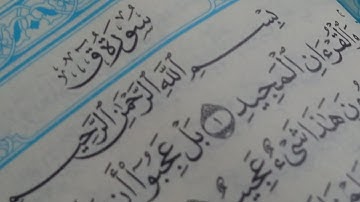 سُورَةُ قٓ
بِسْمِ ٱللَّهِ ٱلرَّحْمَٰنِ ٱلرَّحِيمِ
ٱلْقُرْءَانِ ٱلْمَجِيدِ ١ بَلْ عَجِبُوٓا۟ أَن
هَٰذَا شَىْءٌ عَجِيبٌ